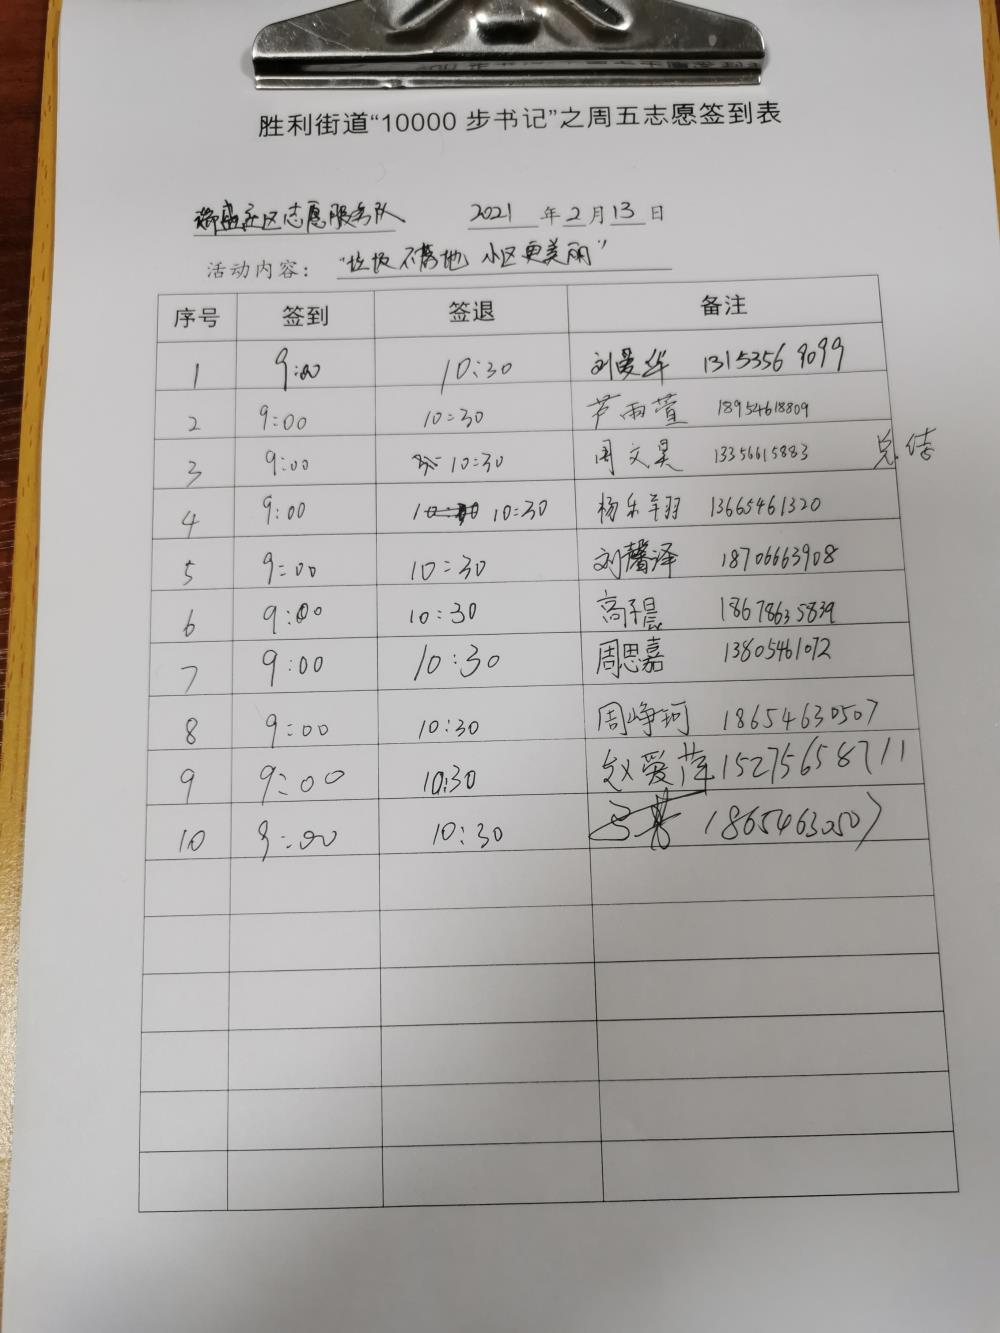 胜利街道“10000 步书记”之周五志愿签到表
社区志愿服务队 2021 年 2 月 13 日
活动内容：“垃圾不落地 小区更美丽”
序号 签到 签退 备注
1 9:00 10:30 刘爱华 13153569099
2 9:00 10:30 芦雨萱 18954618809
3 9:00 10:30 周文昊 13356615883 总结
4 9:00 10:30 杨乐羽 13665461320
5 9:00 10:30 刘馨泽 18706663908
6 9:00 10:30 高子晨 18678635839
7 9:00 10:30 周思嘉 13805461072
8 9:00 10:30 周峥珂 18654630507
9 9:00 10:30 赵爱萍 15275658711
10 9:00 10:30 18654630507